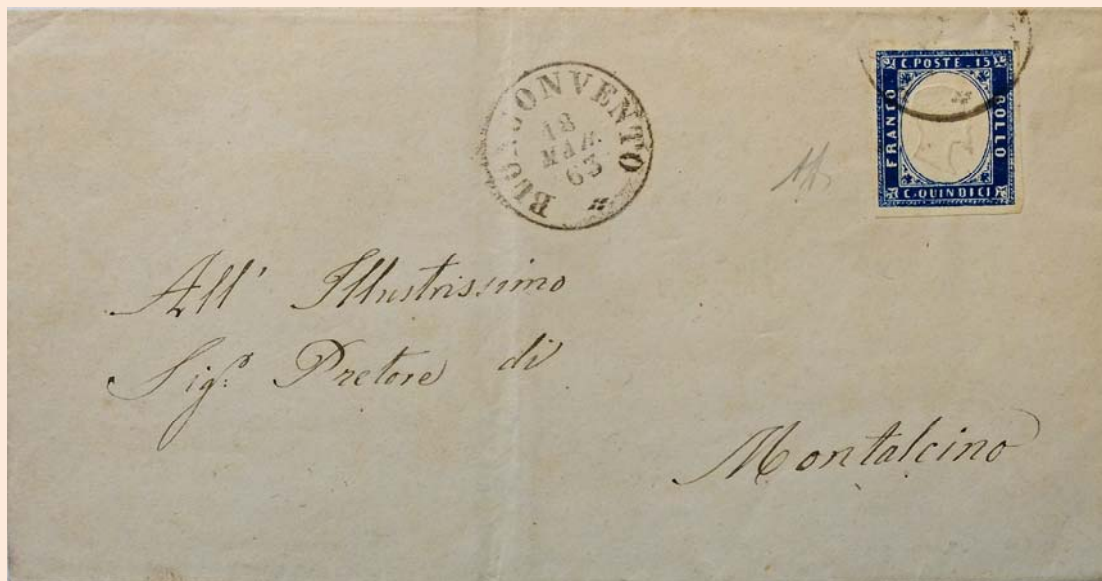 BUONCONVENTO
18
MAR.
63
C. POSTE. 15
FRANCO
BOLLO
C. QUINDICI
All' Illustrissimo
Sigr. Pretore di
Montalcino